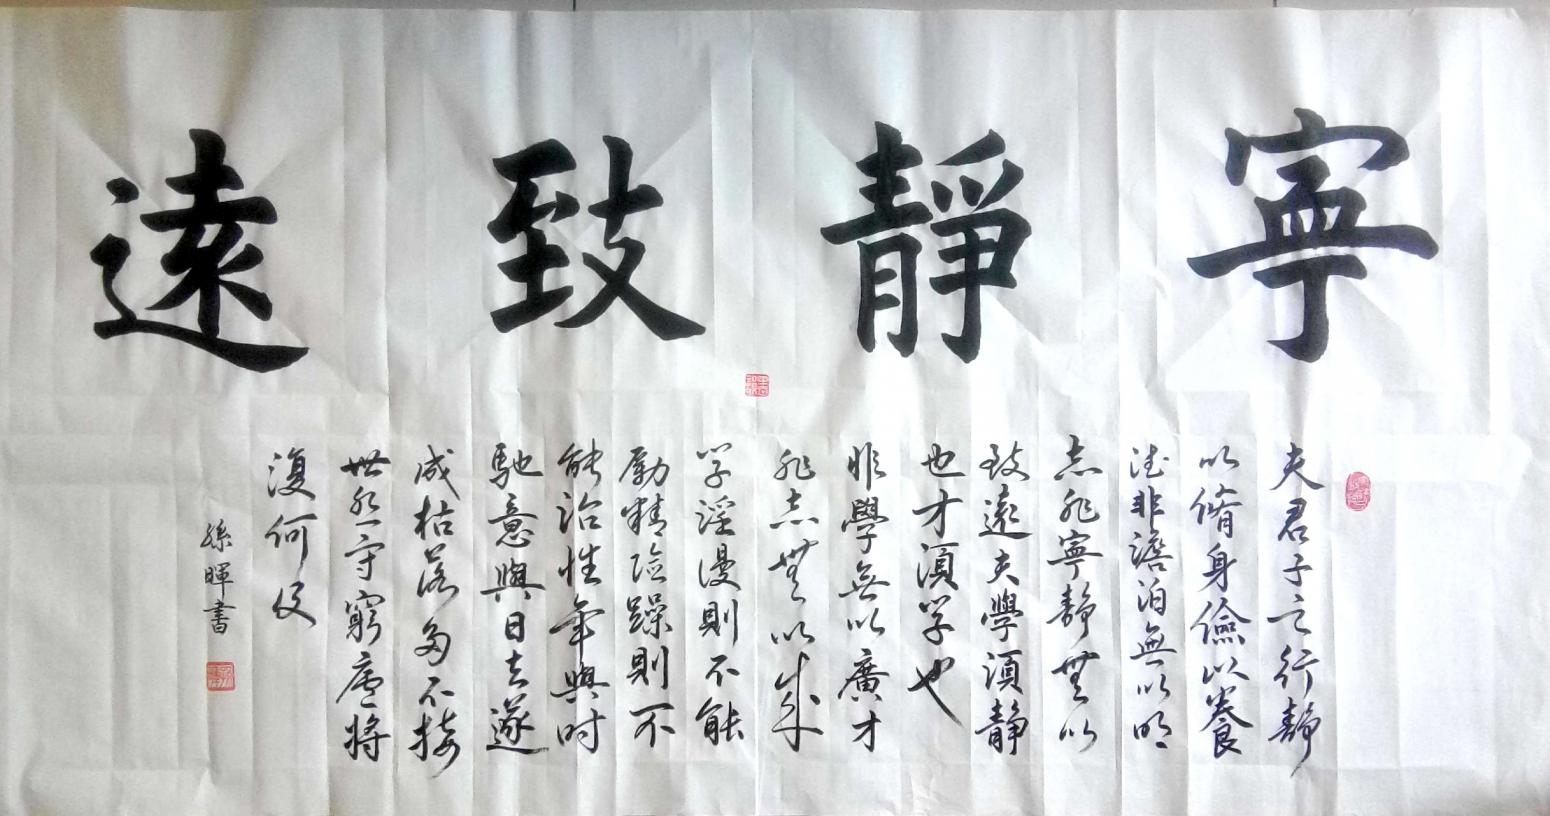 寧靜致遠
夫君子之行靜
以脩身儉以養
德非澹泊無以明
志非寧靜無以
致遠夫學須靜
也才須學也
非學無以廣才
非志無以成
學淫漫則不能
勵精險躁則不
能治性年與时
馳意與日去遂
成枯落多不接
世悲守窮廬將
復何及
孫暉書